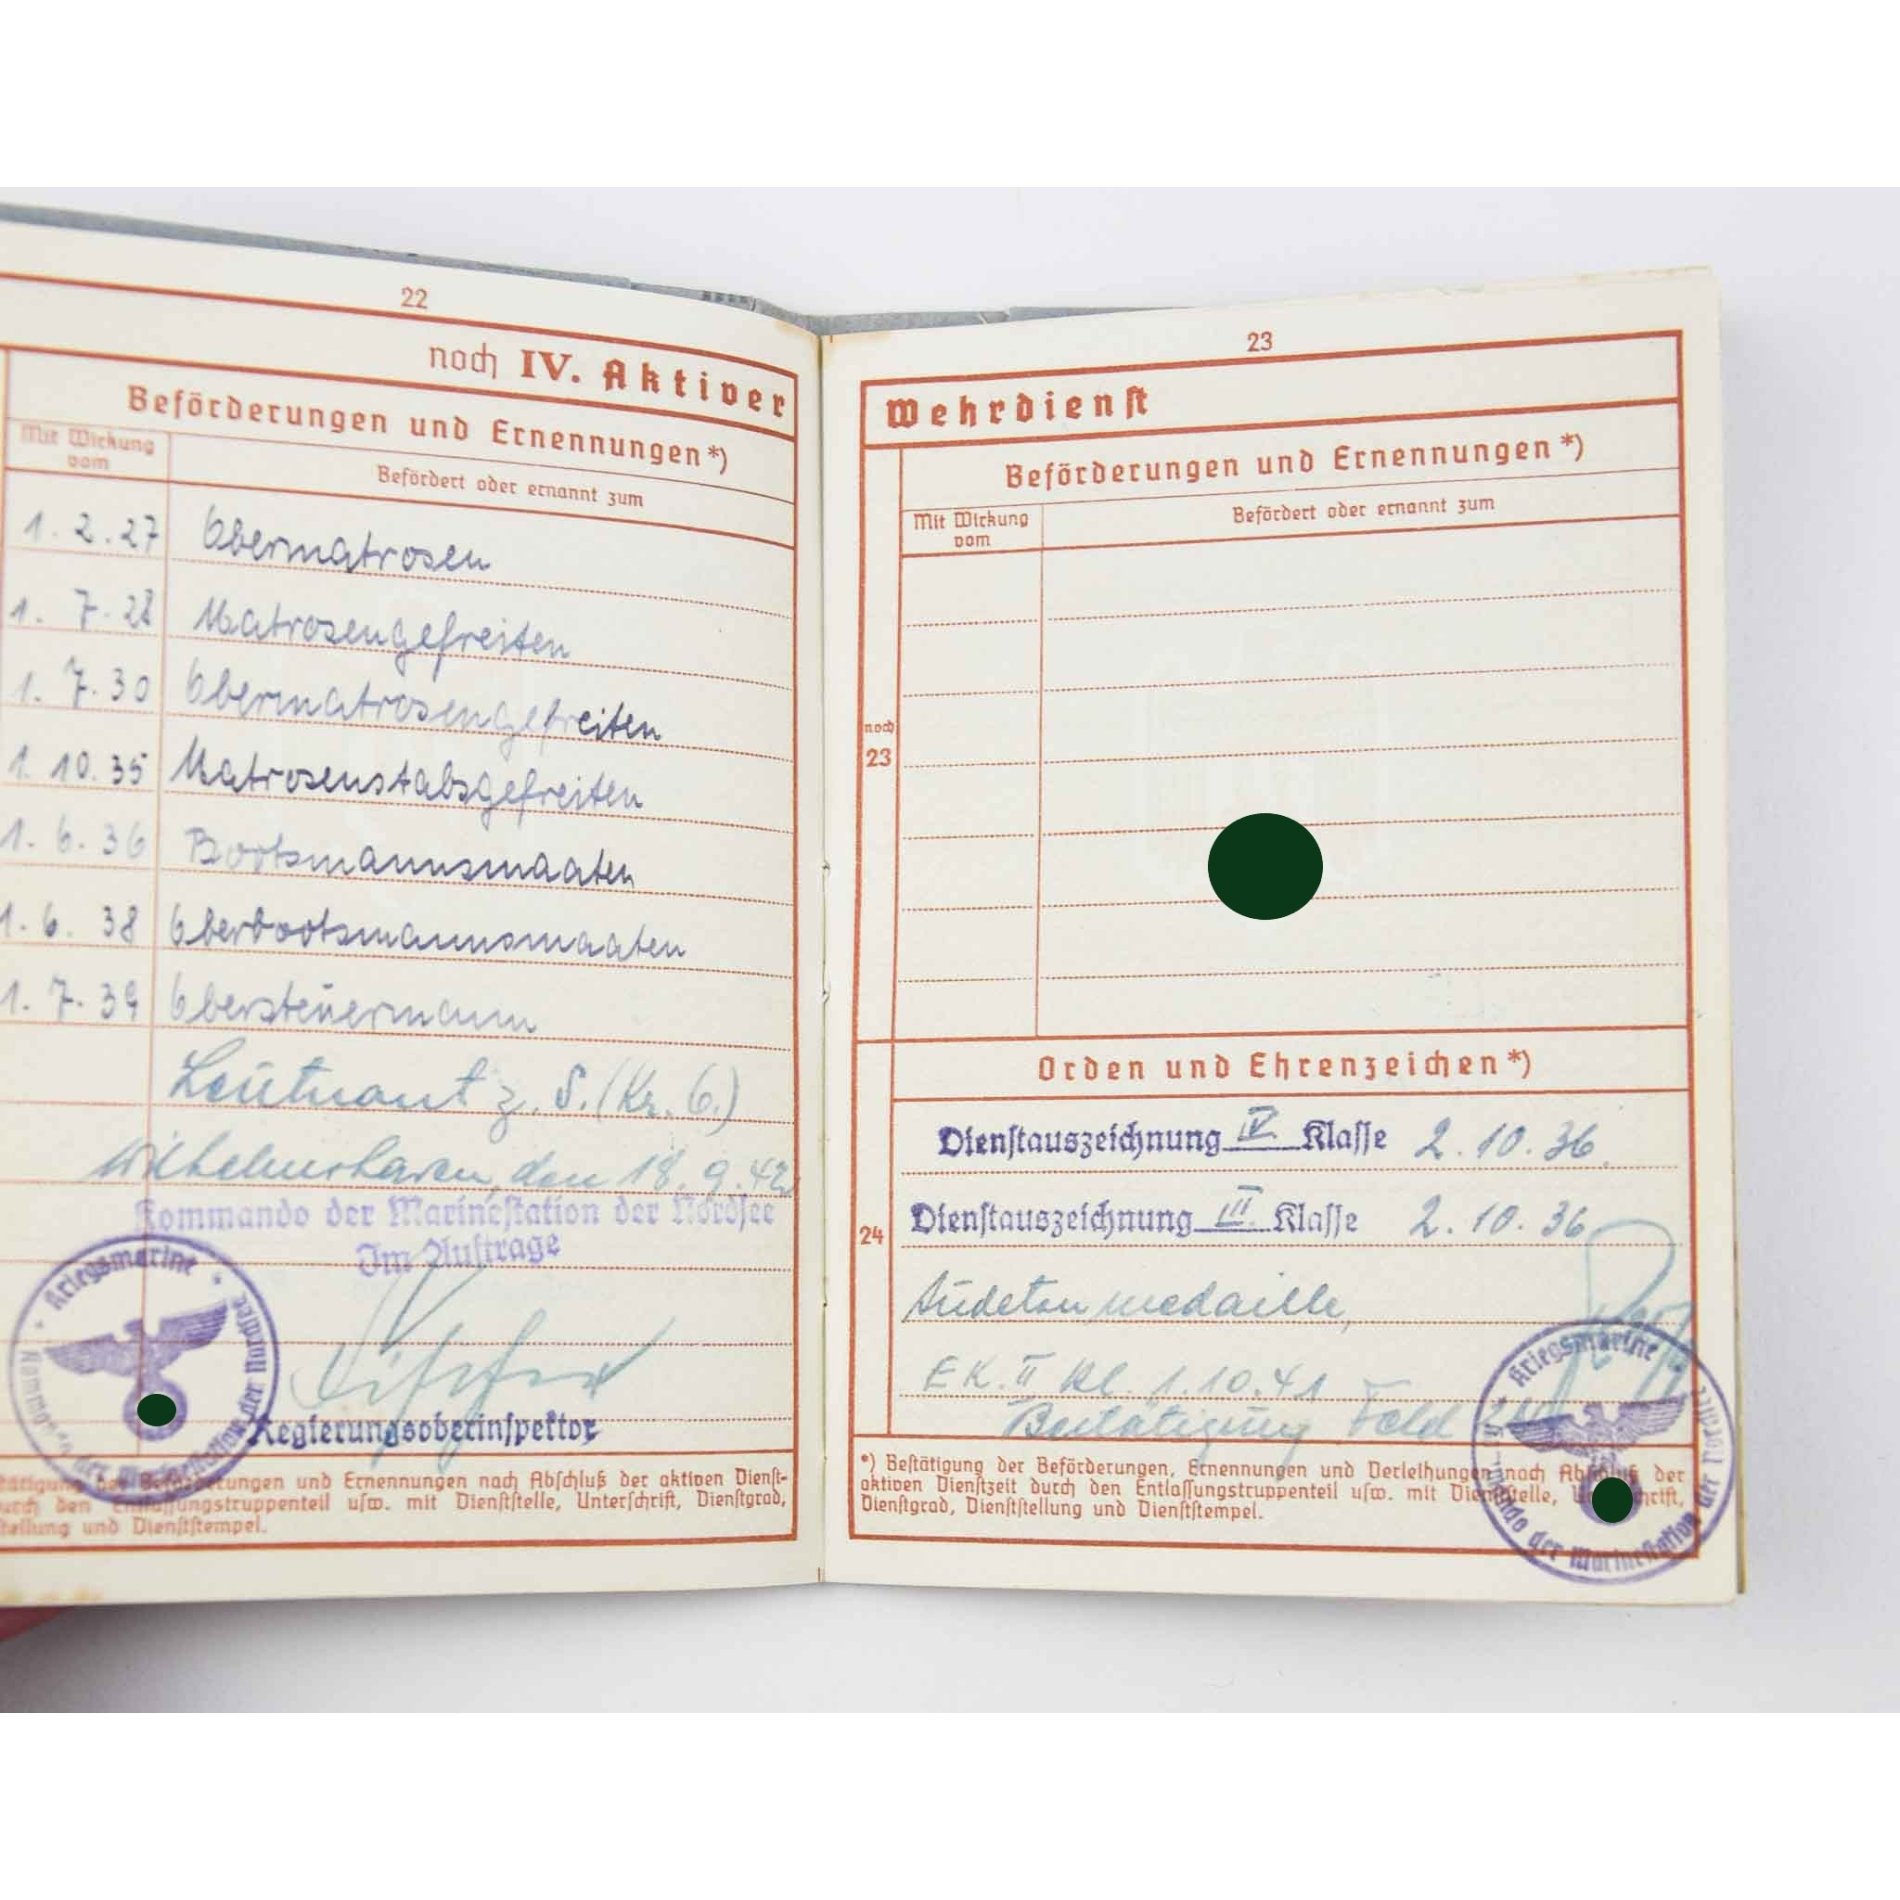 22
noch IV. Aktiver
Beförderungen und Ernennungen*)
Mit Wirkung vom
Befördert oder ernannt zum
1. 2. 27 Obermatrosen
1. 7. 28 Matrosengefreiten
1. 7. 30 Obermatrosengefreiten
1. 10. 35 Matrosenstabsgefreiten
1. 6. 36 Bootsmannsmaaten
1. 6. 38 Oberbootsmannsmaaten
1. 7. 39 Obersteuermann
Leutnant z. S. (Kr. O.)
Wilhelmshaven, den 18. 9. 42
Kommando der Marinestation der Nordsee
Im Auftrage
Regierungsoberinspektor
Kriegsmarine
Kommando der Marinestation der Nordsee
der Beförderungen und Ernennungen nach Abschluß der aktiven Dienst-
durch den Entlassungstruppenteil usw. mit Dienststelle, Unterschrift, Dienstgrad,
und Dienststempel.
23
Wehrdienst
Beförderungen und Ernennungen*)
Mit Wirkung vom
Befördert oder ernannt zum
noch
23
24
Orden und Ehrenzeichen*)
Dienstauszeichnung IV. Klasse 2. 10. 36.
Dienstauszeichnung III. Klasse 2. 10. 36
Sudetenmedaille,
E.K. II Kl. 1. 10. 41
Bestätigung Feld
Kriegsmarine
Kommando der Marinestation der Nordsee
*) Bestätigung der Beförderungen, Ernennungen und Verleihungen nach Abschluß der
aktiven Dienstzeit durch den Entlassungstruppenteil usw. mit Dienststelle, Unterschrift,
Dienstgrad, Dienststellung und Dienststempel.